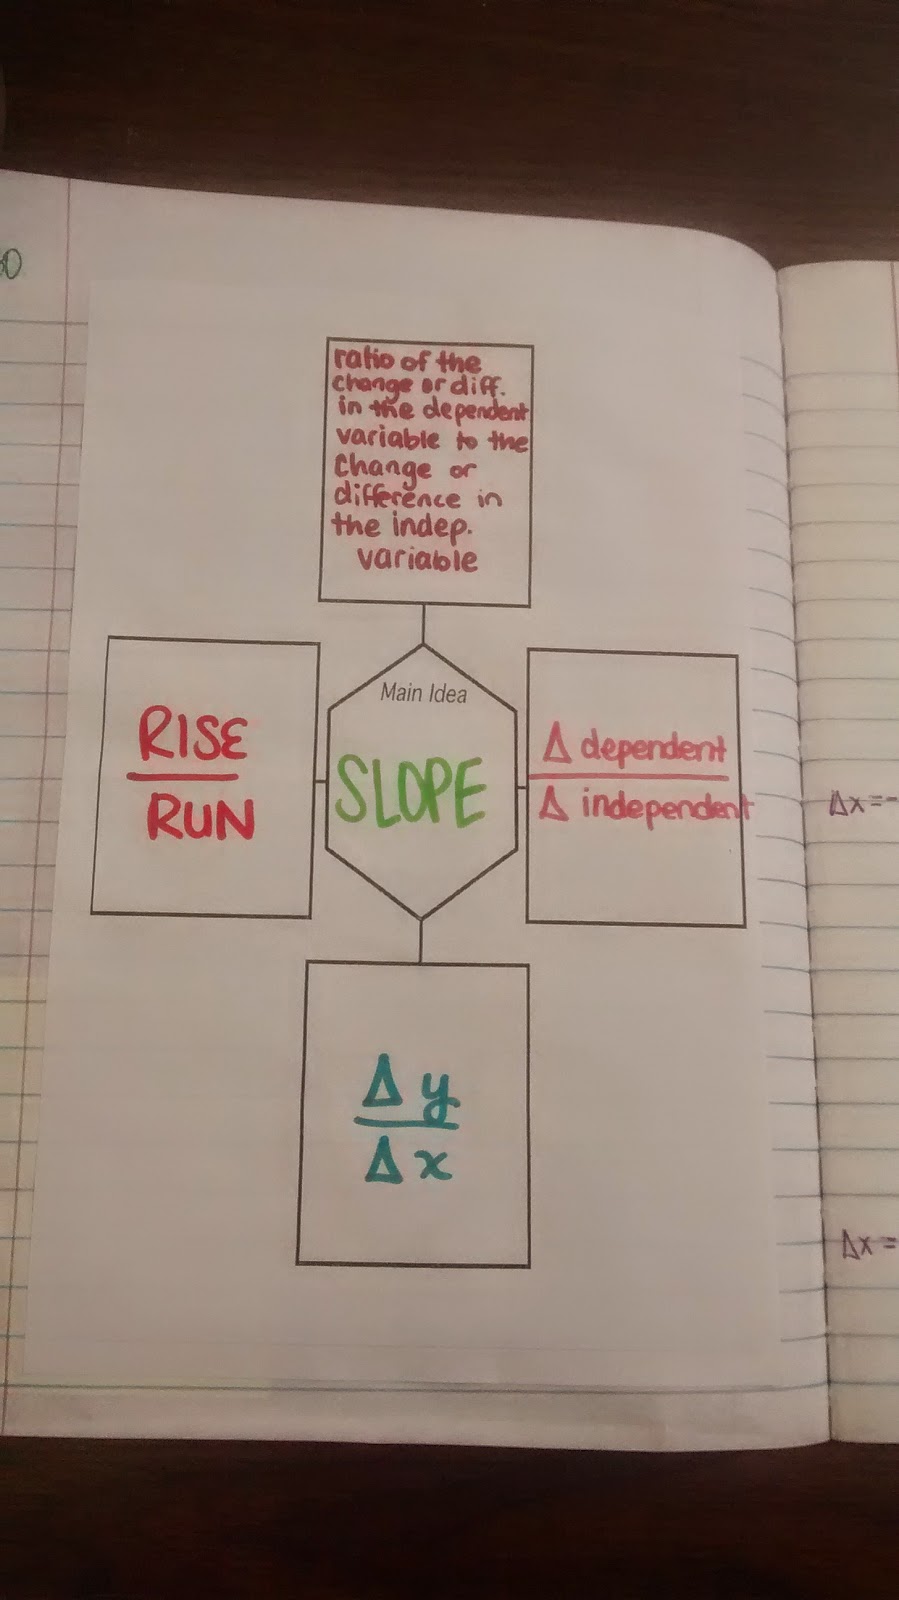 ratio of the
change or diff.
in the dependent
variable to the
change or
difference in
the indep.
variable
Main Idea
SLOPE
RISE
RUN
Δ dependent
Δ independent
Δ y
Δ x
Δx = -
Δx =